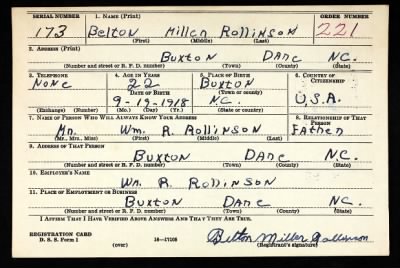 SERIAL NUMBER 1. NAME (Print) ORDER NUMBER
173 Belton Miller Rollinson 221
(First) (Middle) (Last)
2. ADDRESS (Print)
Buxton Dare N.C.
(Number and street or R. F. D. number) (Town) (County) (State)
3. TELEPHONE 4. AGE IN YEARS 5. PLACE OF BIRTH 6. COUNTRY OF CITIZENSHIP
None 22 Buxton
DATE OF BIRTH (Town or county)
9-19-1918 N.C. U.S.A.
(Exchange) (Number) (Mo.) (Day) (Yr.) (State or country)
7. NAME OF PERSON WHO WILL ALWAYS KNOW YOUR ADDRESS 8. RELATIONSHIP OF THAT PERSON
Mr. Wm. R. Rollinson Father
(Mr., Mrs., Miss) (First) (Middle) (Last)
9. ADDRESS OF THAT PERSON
Buxton Dare N.C.
(Number and street or R. F. D. number) (Town) (County) (State)
10. EMPLOYER'S NAME
Wm. R. Rollinson
11. PLACE OF EMPLOYMENT OR BUSINESS
Buxton Dare N.C.
(Number and street or R. F. D. number) (Town) (County) (State)
I AFFIRM THAT I HAVE VERIFIED ABOVE ANSWERS AND THAT THEY ARE TRUE.
REGISTRATION CARD
D. S. S. Form 1 (over) 16—17105 Belton Miller Rollinson
(Registrant's signature)